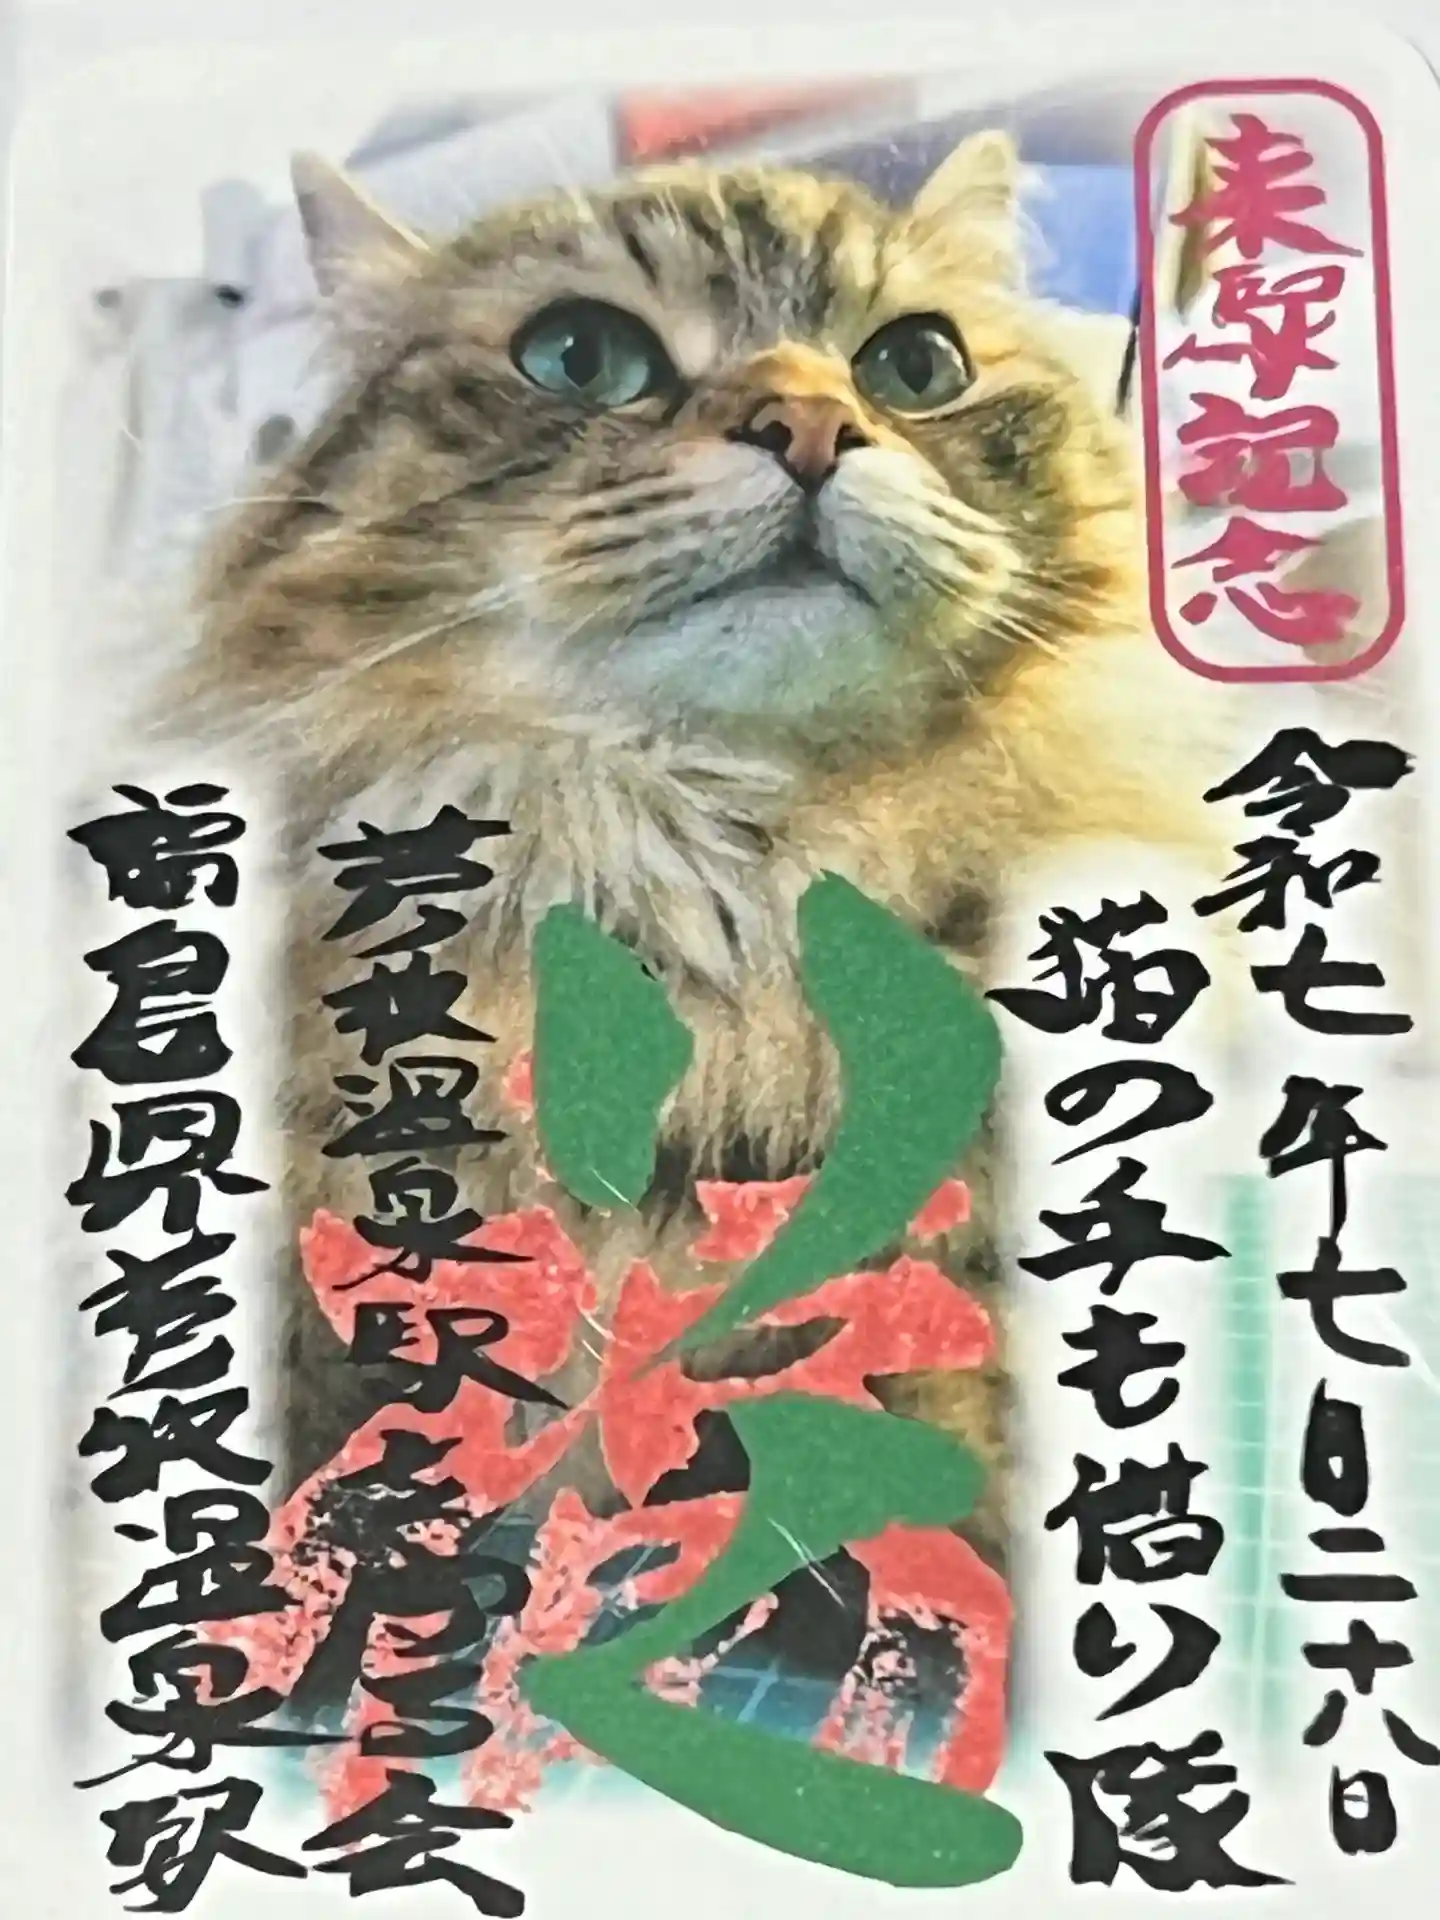 来駅記念
令和七年七月二十八日
猫の手も借り隊
芦ノ牧温泉駅を守る会
福島県芦ノ牧温泉駅